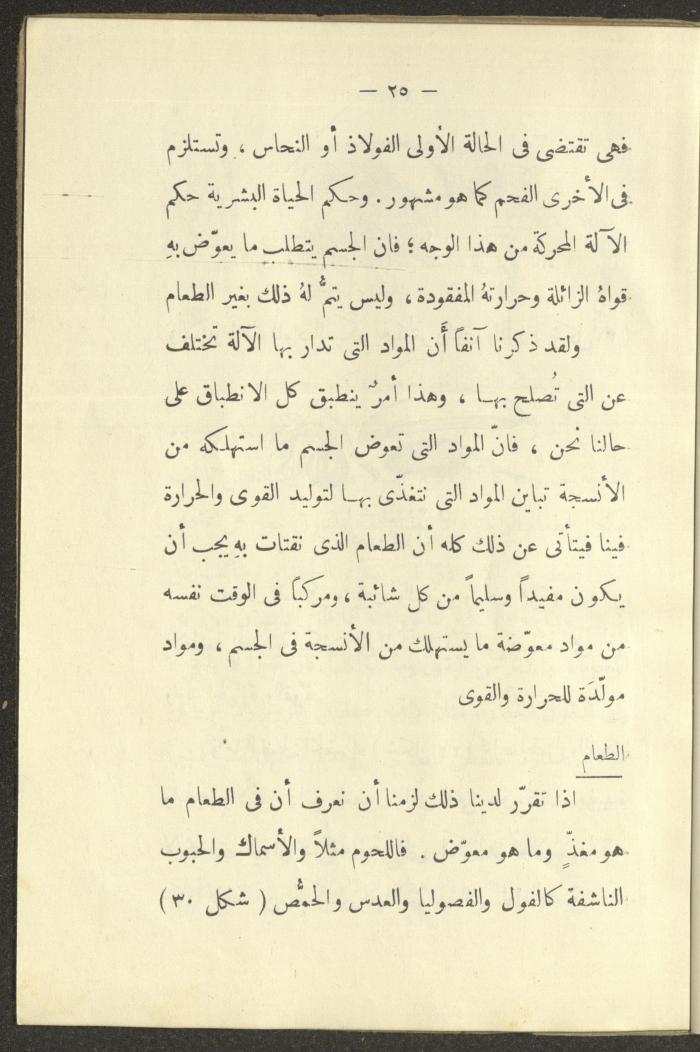 — ٢٥ —
فهى تقتضى فى الحالة الأولى الفولاذ أو النحاس ، وتستلزم
فى الأخرى الفحم كما هو مشهور . وحكم الحياة البشرية حكم
الآلة المحركة من هذا الوجه ؛ فان الجسم يتطلب ما يعوّض بهِ
قواهُ الزائلة وحرارتهُ المفقودة ، وليس يتمُّ لهُ ذلك بغير الطعام
ولقد ذكرنا آنفاً أَن المواد التى تدار بها الآلة تختلف
عن التى تُصلح بهـا ، وهذا أمرٌ ينطبق كل الانطباق على
حالنا نحن ، فانّ المواد التى تعوض الجسم ما استهلكه من
الأنسجة تباين المواد التى نتغذّى بهـا لتوليد القوى والحرارة
فينا فيتأتى عن ذلك كله أن الطعام الذى نقتات بهِ يجب أن
يكون مفيداً وسليماً من كل شائبة ، ومركباً فى الوقت نفسه
من مواد معوّضة ما يستهلك من الأنسجة فى الجسم ، ومواد
مولّدَة للحرارة والقوى
الطعام
اذا تقرّر لدينا ذلك لزمنا أن نعرف أن فى الطعام ما
هو مغذّ وما هو معوّض . فاللحوم مثلاً والأسماك والحبوب
الناشفة كالفول والفصوليا والعدس والحمُّص ( شكل ٣٠ )